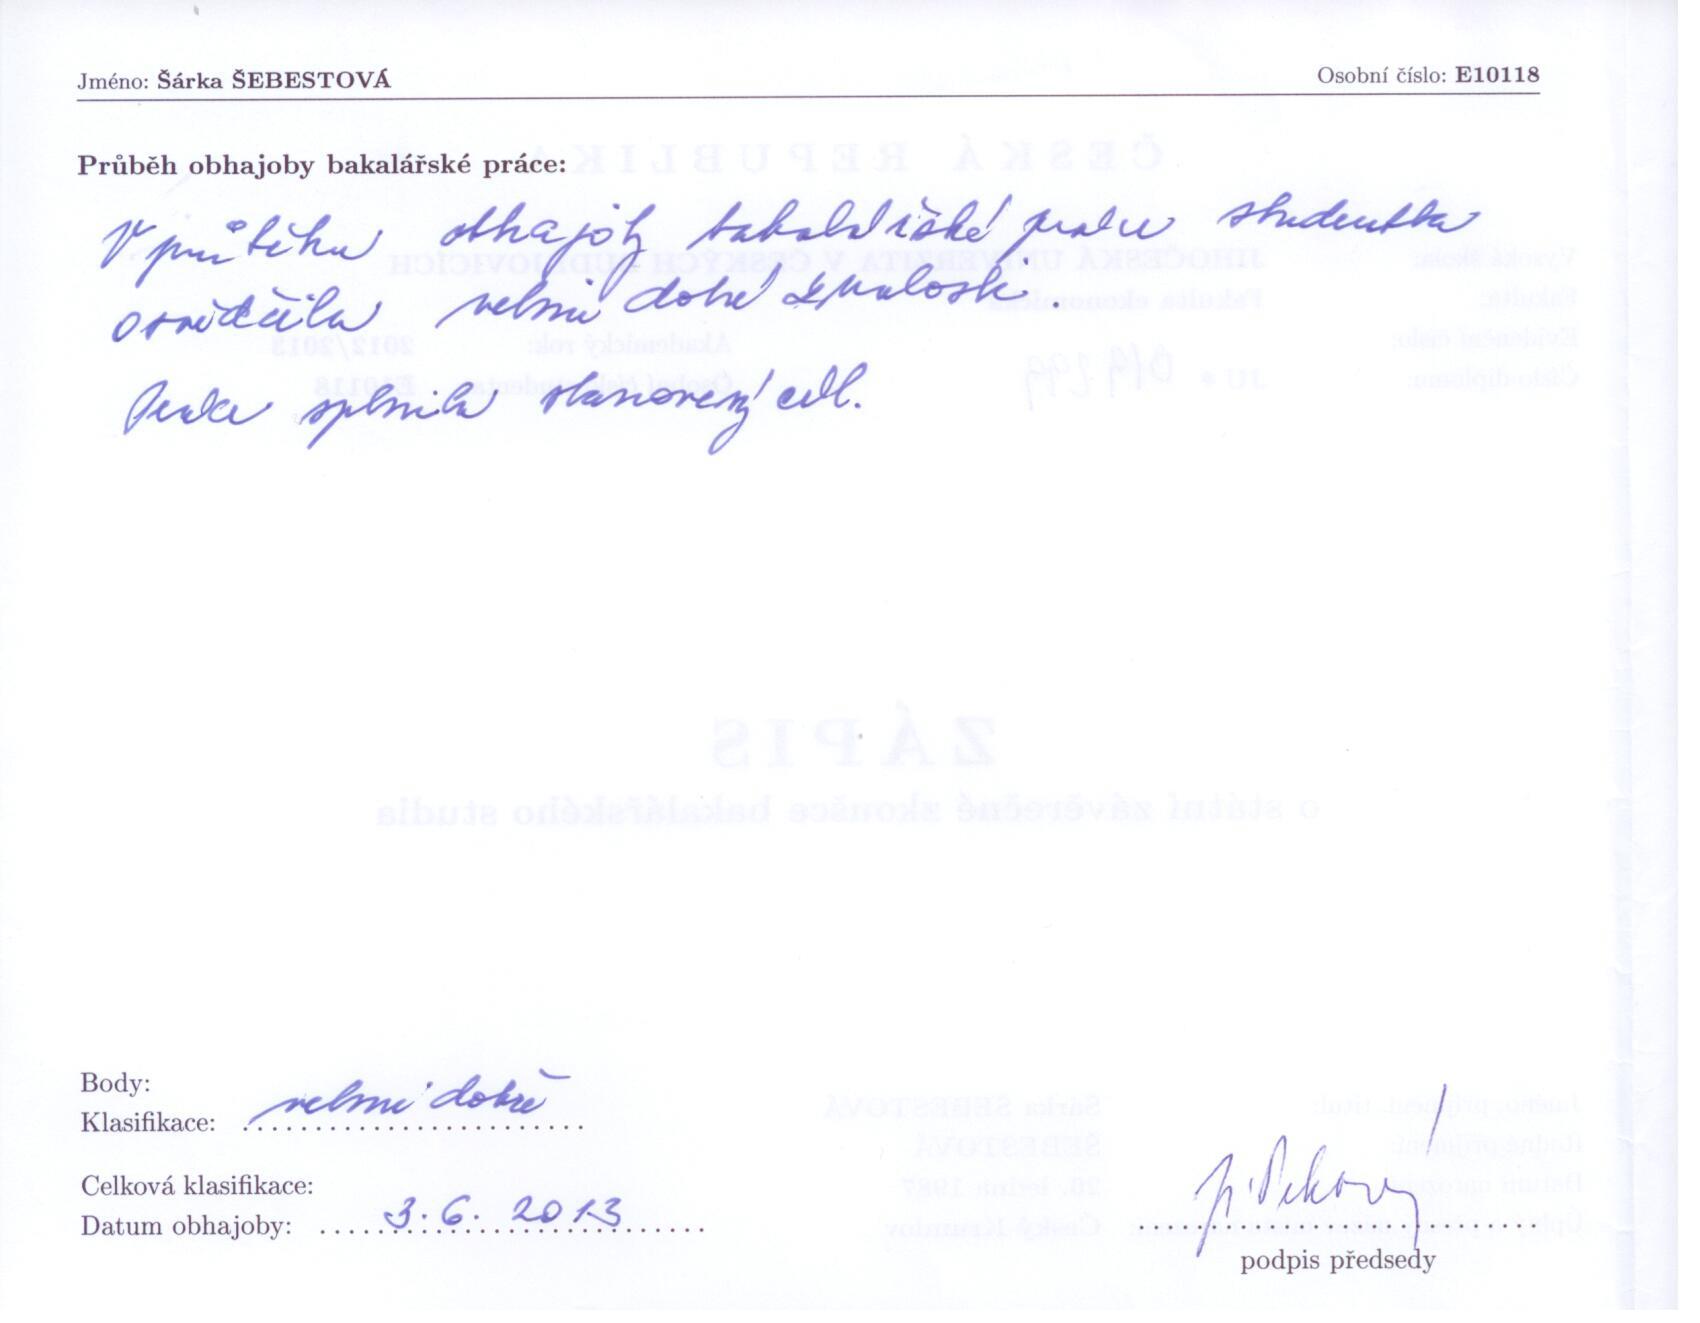 Jméno: Šárka ŠEBESTOVÁ Osobní číslo: E10118
Průběh obhajoby bakalářské práce:
V průběhu obhajoby bakalářské práce studentka
osvědčila velmi dobré znalosti.
Práce splnila stanovený cíl.
Body:
Klasifikace: velmi dobře
Celková klasifikace:
Datum obhajoby: 3. 6. 2013
podpis předsedy